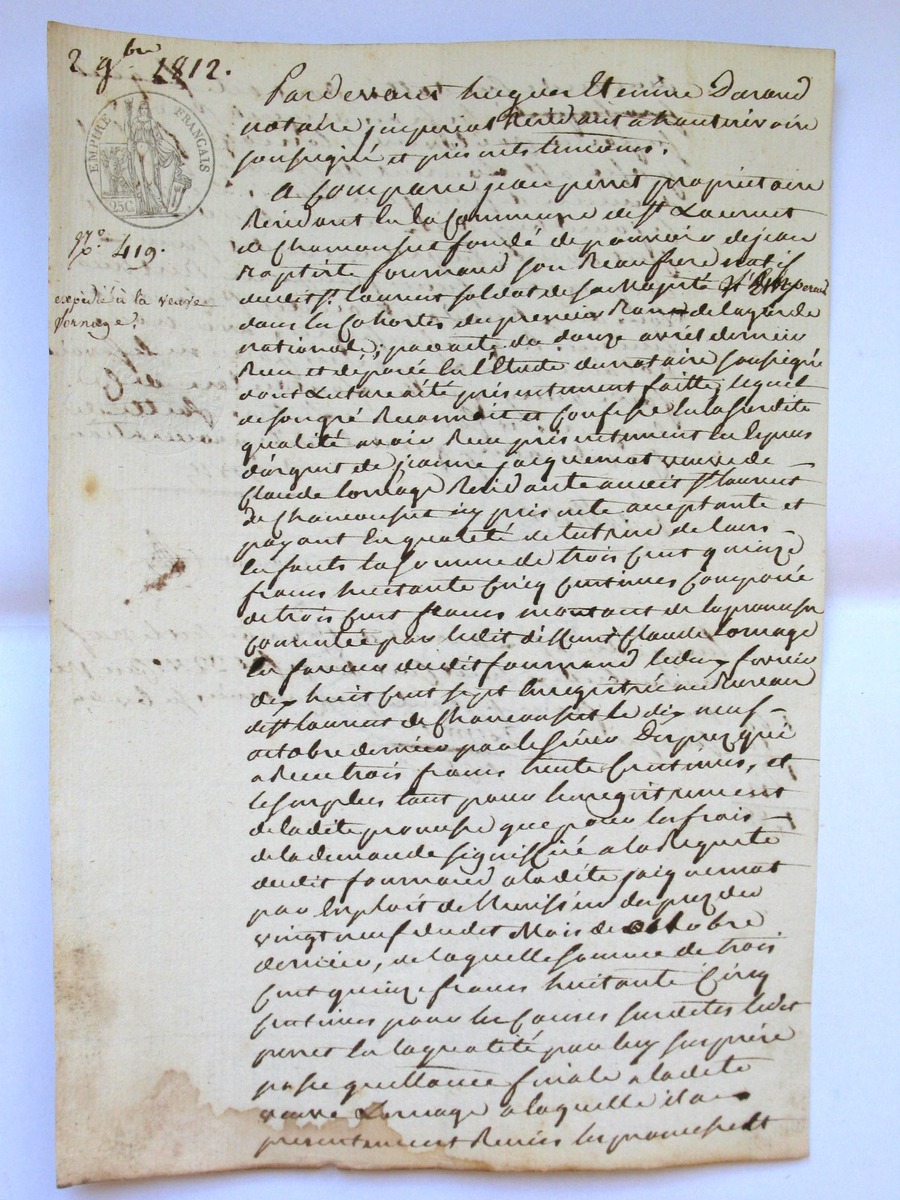 2 9bre 1812.
EMPIRE FRANÇAIS
25C
No. 419.
expédié à la veuve
Lornage.
Pardevant hugues Etienne Durand
notaire impérial Résidant à hauterivoire
soussigné et présents témoins.
a Comparu jean perret propriétaire
Résidant en la Commune de st Laurent
de Chamousset fondé de pouvoirs de jean
Baptiste fournand son Beaufrère natif
dudit st. laurent soldat de sa Majesté
dans les Cohortes du premier Ban de la garde
national, par acte du douze avril dernier
Reçu et déposé en l'Etude du notaire soussigné
dont Lecture a été présentement faitte; lequel
de son gré Reconnoit et Confesse en la susdite
qualité avoir Reçu présentement en espèces
d'argent de jeanne jacquemot veuve de
Claude Lornage Résidante audit st laurent
de Chamousset icy présente acceptante et
payant En qualité de tutrice de leurs
Enfants la somme de trois Cent quinze
francs huitante Cinq Centimes Composée
de trois Cent francs montant de la promesse
Consentée par ledit défunt Claude Lornage
En faveur dudit fournand le dix février
dix huit Cent sept Enregistrée au Bureau
de st laurent de Chamousset le dix neuf
octobre dernier par le sieur Desprez qui
a Reçu trois francs trente Centimes, et
le surplus tant pour l'enregistrement
de la dite promesse que pour les frais
de la demande signiffiée a la Requête
dudit fournand a la dite jacquemot
par Exploit de l'huissier duprez du
vingt neuf dudit Mois de octobre
dernier, de laquelle somme de trois
Cent quinze francs huitante Cinq
Centimes pour les Causes susdites ledit
perret En la qualité par luy
passe quittance finale a la dite
veuve Lornage a laquelle il a
présentement Remis la promesse et